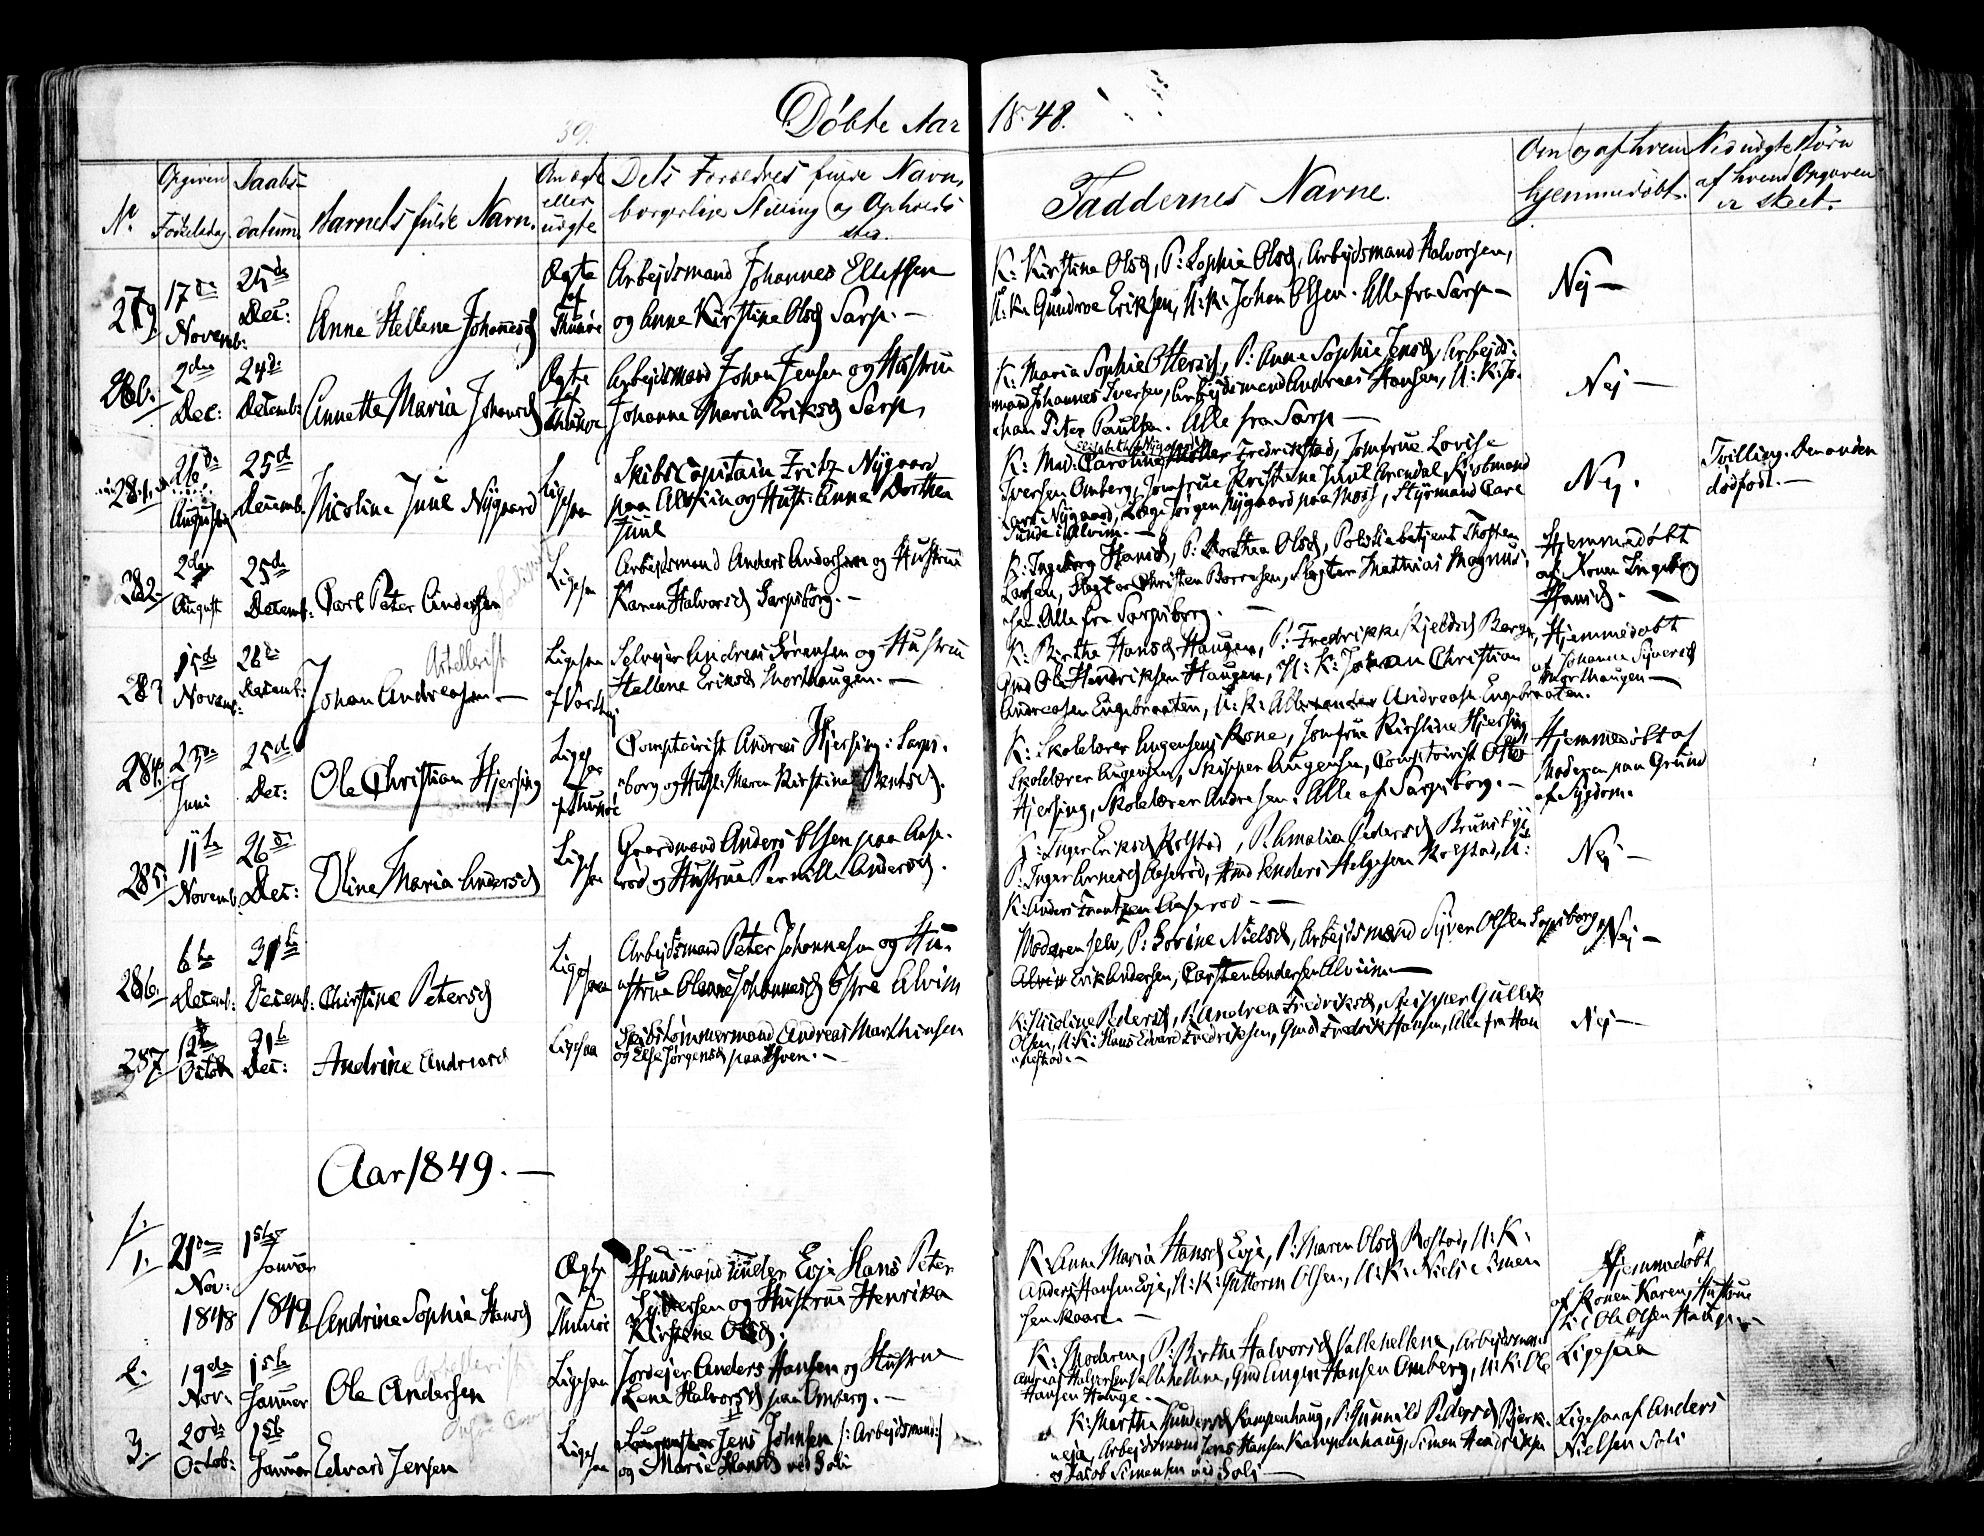 Døbte Aar 1848.
39.
No
Opgiven Fødselsdag
Daabsdatum
Barnets fulde Navn.
Om ægte eller uægte
Dets Forældres fulde Navn, borgerlige Stilling og Opholdssted.
Faddernes Navne.
Om og af hvem hjemmedøbt.
Ved uægte Børn af hvem Opgaven er skeet.
279
17de Novemb:
25de Dec:
Anne Hellene Johannesd
Ægte af Thunøe
Arbejdsmand Johannes Elleffsen
og Anne Kirstine Olsd Sarp. —
K: Kirstine Olsd, P: Sophie Olsd, Arbejdsmand Halvorsen,
U.K. Gundroe Eriksen, U:K: Johan Olsen. Alle fra Sarp —
Nej —
280.
2den Dec:
24de Decemb:
Annette Maria Johansd
Ægte af Thunøe
Arbejdsmand Johan Jensen og Hustrue
Johanne Maria Eriksd Sarp,
K: Maria Sophie Ottersd, P: Anne Sophie Jensd, Arbejds-
mand Johannes Iversen, Arbejdsmand Andreas Hansen, U:K: Jo-
han Peter Paulsen. Alle fra Sarp —
Nej —
281.
26de Augustii
25d Decemb.
Nicoline Juul Nygaard
Ligesaa
Skibscapitain Fritz Nygaard
paa Alvim og Hust: Anne Dorthea
Juul
K: Mad: Caroline Møller Fredrikstad, Jomfrue Lovise
Iversen Omberg, Jomfrue Kristiane Juul Arendal, Kjøbmand
Lars Nygaard, Læge Jørgen Nygaard paa Moss, Styrmand Carl
Sunde i Alvim. —
Nej.
Tvilling. Den anden
dødfødt. —
282.
2den August
25d Decemb:
Carl Peter Andersen
Ligesaa
Arbejdsmand Anders Andersen og Hustrue
Karen Halvorsd Sarpsborg. —
K: Ingeborg Hansd, P: Dorthea Olsd, Politiebetjent Thosten
Larsen, Slagter Christen Borresen, Slagter Mathias Magnus-
sen Alle fra Sarpsborg. —
Hjemmedøbt
af Konen Ingeborg
Hansd. —
283
15d Novemb:
26de Decemb:
Johan Andreasen —
Ligesaa af Vorthug
Selvejer Andreas Sørensen og Hustrue
Hellene Eriksd Morthaugen. —
K: Birthe Hansd Haugen, P: Fredrikke Kjeldsd Berge,
Gmd Ole Hendriksen Haugen, U: K: Johan Christian
Andreasen Engebraaten, U: K: Alexander Andreasen Engebraaten.
Hjemmedøbt
af Johanne Syversd
Morthaugen —
284.
23de Juni
25d Dec:
Ole Christian Hjersing
Ligesaa af Thunøe
Comptoirist Andreas Hjersing i Sarps-
borg og Hust: Maren Kirstine Berntsd.
K: Skolelærer Augensens Kone, Jomfrue Kirstine Hjersing
Skolelærer Augensen, Skipper Augensen, Comptoirist Otto
Hjersing, Skolelærer Andresen: Alle af Sarpsborg. —
Hjemmedøbt af
Moderen paa Grund
af Sygdom.
285.
11te Novemb.
26de Dec:
Oline Maria Andersd
Ligesaa
Gaardmand Anders Olsen paa Aase-
rød og Hustrue Pernille Andersd.
K: Inger Eriksd Rolstad, P: Amalia Pedersd Brunsbye
P: Inger Arnesd Aaserød, Gmd Anders Helgesen Rolstad, U:
K: Anders Frantzen Aaserød —
Nej —
286.
6te Decemb:
31te Decemb:
Christine Petersd
Ligesaa
Arbejdsmand Peter Johannesen og Hu-
strue Olenne Johannesd Østre Alvim
Moderen selv, P: Sorine Nielsd, Arbejdsmand Syver Olsen Sarpsborg,
Alvim Erik Andersen, Carsten Andersen Alvim —
Nej —
287
12te Octob:
31te Dec:
Andrine Andreasd
Ligesaa
Skibstømmermand Andreas Marthinsen
og Else Jørgensd paa Hven. —
K: Nicoline Pedersd, P: Andrea Fredriksd, Skipper Gullik
Olsen, U:K: Hans Edvard Fredriksen, Gmd Fredrik Hansen, Alle fra Han
nestad. —
Nej —
Aar 1849. —
1.
21de Nov: 1848
1ste Januar 1849
Andrine Sophie Hansd
Ægte Thunøe
Huusmand under Evje Hans Peter
Syversen og Hustrue Henrika
Kirstine Olsd.
K: Anne Maria Hansd Evje, P: Maren Olsd Rostad, U: K:
Anders Hansen Evje, U: K: Guttorm Olsen, U: K: Niels Simen
sen Skaare. —
Hjemmedøbt
af Konen Karen, Hustrue
til Ole Olsen Hauge. —
2.
19de Nov:
1ste Januar
Ole Andersen
Ligesaa
Jordejer Anders Hansen og Hustrue
Lene Halvorsd paa Omberg. —
K: Moderen, P: Birthe Halvorsd Sallehellene, Arbejdsmand
Andreas Halvorsen Sallehellene, Gmd Augen Hansen Omberg, U: K: Ole
Hansen Hauge. —
Ligesaa
3.
20de Octob:
1ste Januar
Edvard Jensen
Ligesaa
Jens Johnsen /: Arbejdsmand :/
og Marie Hansd ved Soli
K: Marthe Gundersd Kampenhaug, P: Gunnild Pedersd Bjerk-
neja, Arbejdsmand Jens Hansen Kampenhaug, Simen Hendriksen
og Jacob Simensen ved Soli —
Ligesaa af Anders
Nielsen Soli